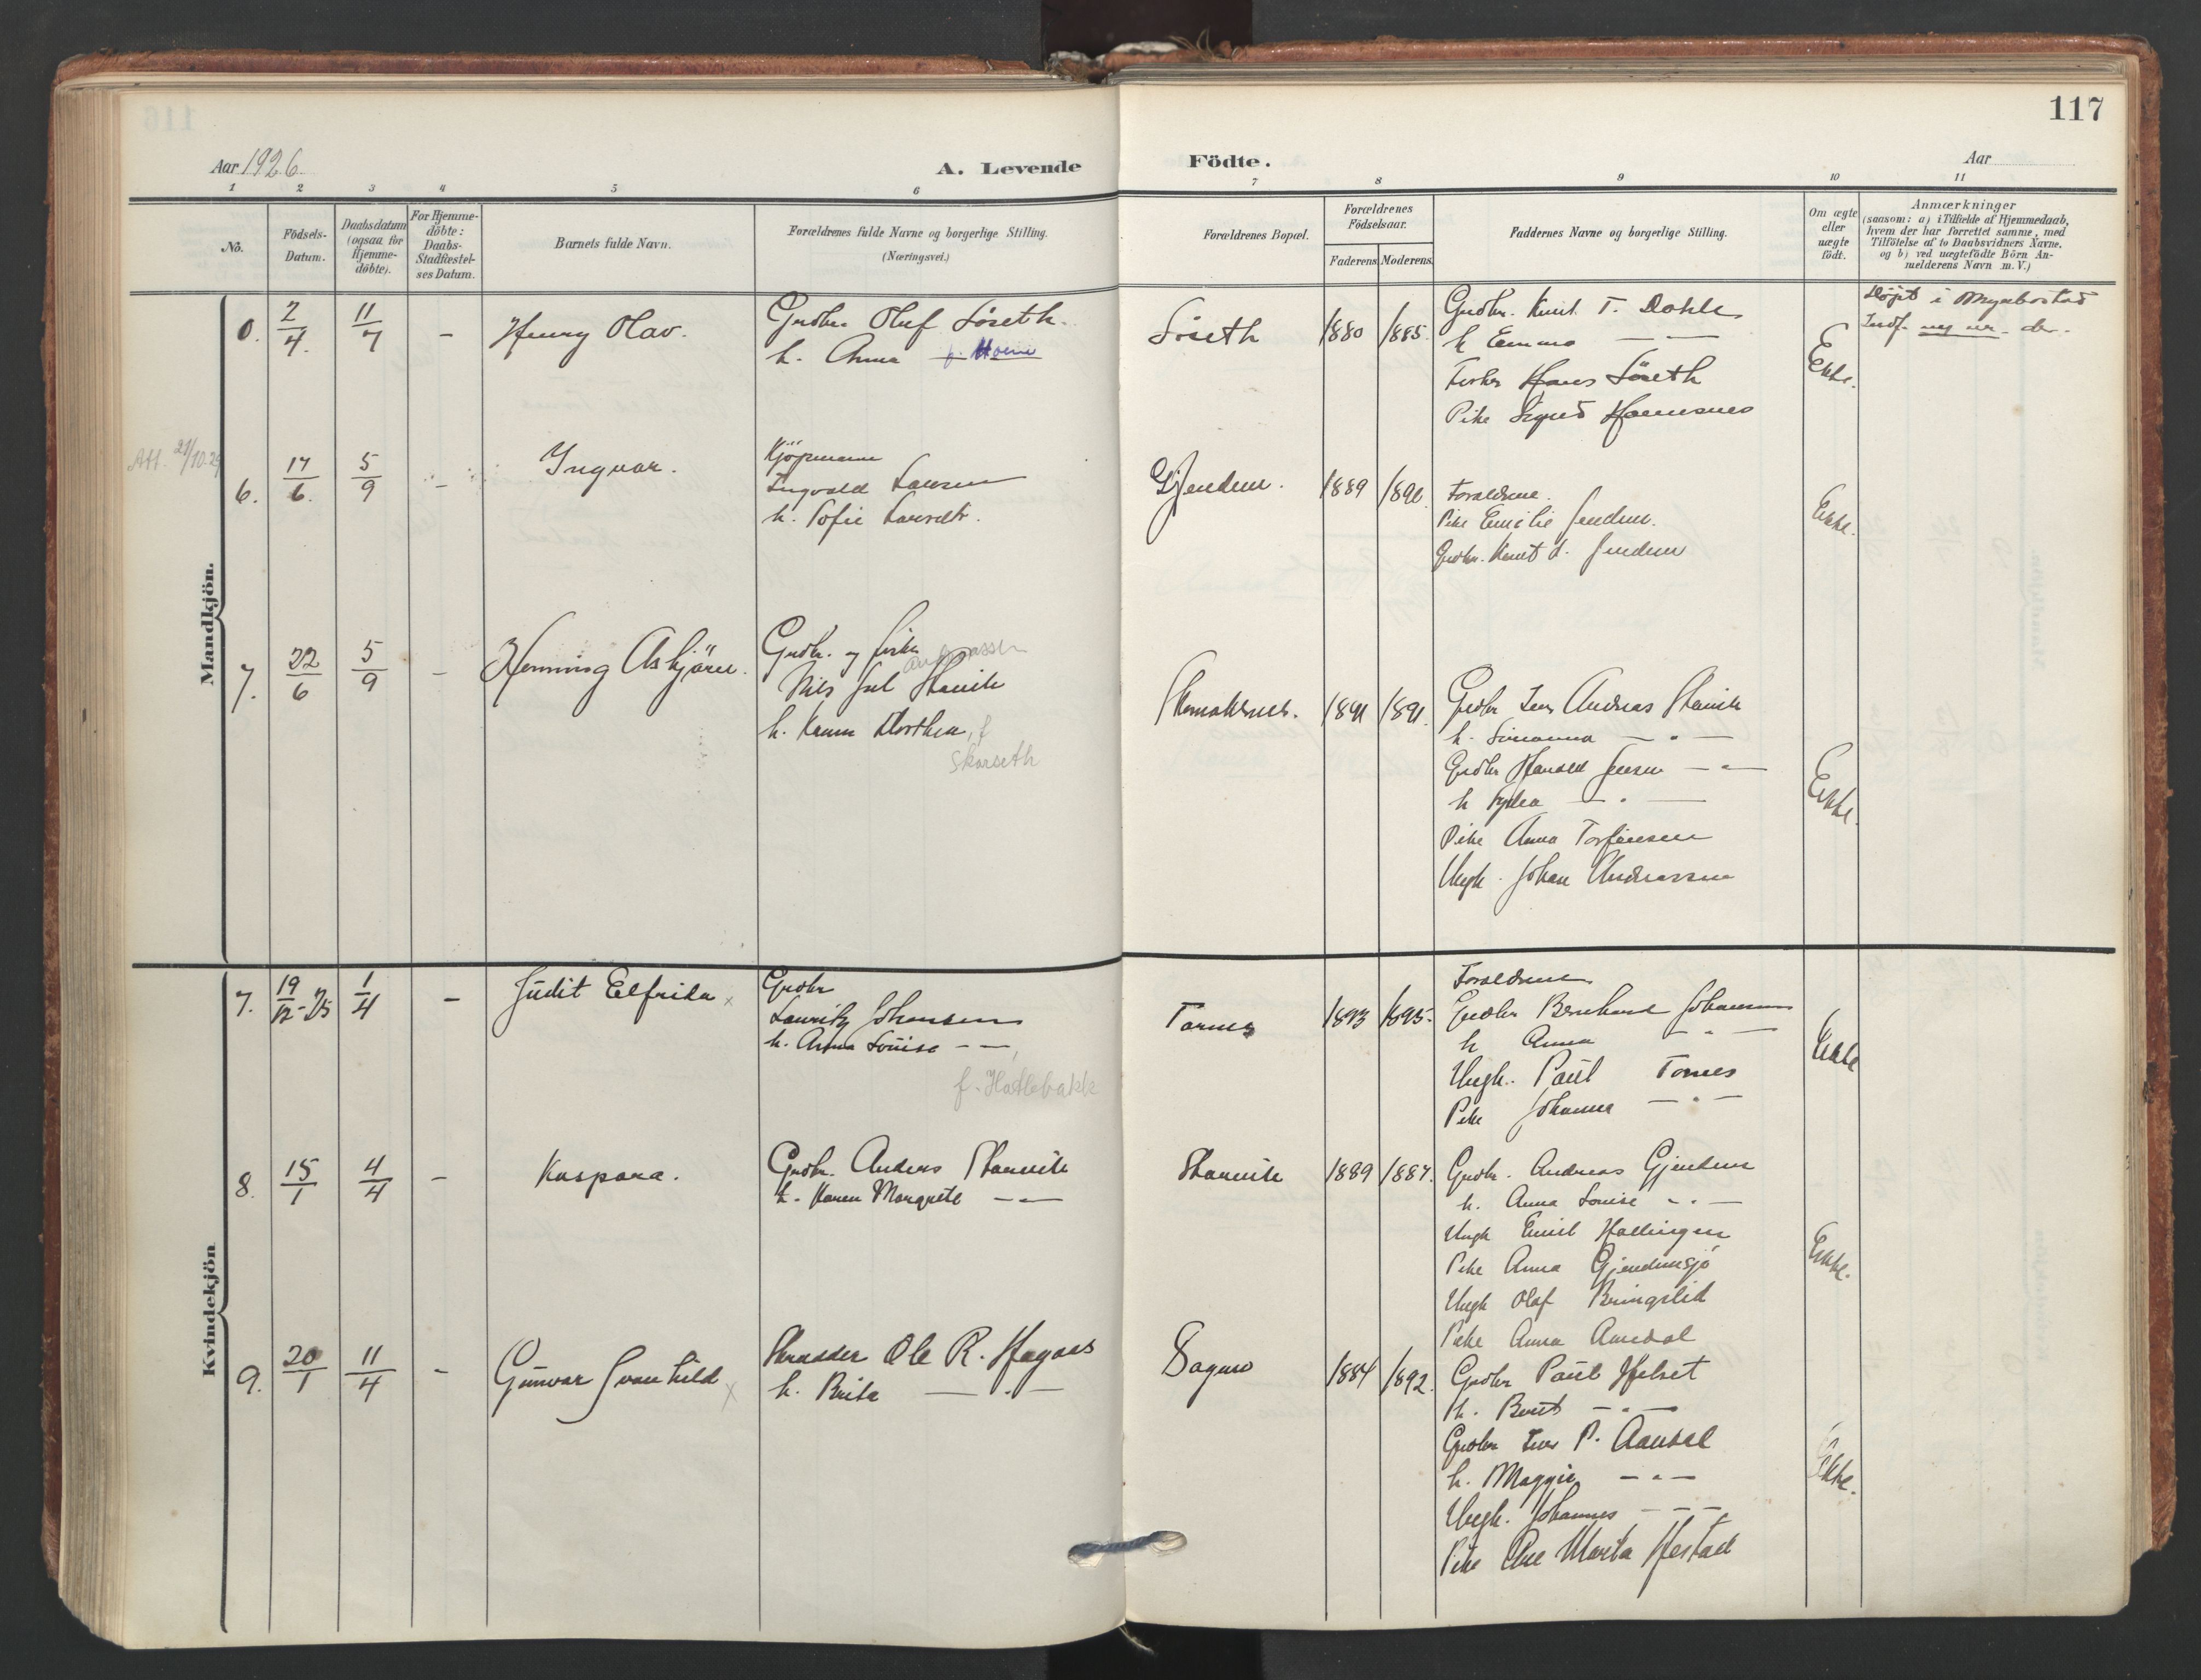 117
Aar 1926.
A. Levende
Födte.
Aar
1 2 3 4 5 6 7 8 9 10 11
No.
Födsels-
Datum.
Daabsdatum
(ogsaa for
Hjemme-
döbte).
For Hjemme-
döbte:
Daabs-
Stadfæstel-
ses Datum.
Barnets fulde Navn.
Forældrenes fulde Navne og borgerlige Stilling.
(Næringsvei.)
Forældrenes Bopæl.
Forældrenes
Födselsaar.
Faderens.
Moderens.
Faddernes Navne og borgerlige Stilling.
Om ægte
eller
uægte
födt.
Anmærkninger
(saasom: a) i Tilfælde af Hjemmedaab,
hvem der har forrettet samme, med
Tilföielse af to Daabsvidners Navne,
og b) ved uægtefödte Börn An-
melderens Navn m. V.)
Mandkjön.
0.
2/4.
11/7
-
Henry Olav.
Grdbr. Oluf Löseth.
h. Anna
Löseth
1880
1885.
Grdbr. Knut T. Dahle
h Emma — —
Fisker Hans Löseth
Pike
Ekte.
Att. 21/10.29
6.
17/6.
5/9
-
Ingvar.
Kjöpmann
Ingvald Larsen
h. Sofie
Gjendem.
1889
1890
Foreldrene.
Pike Emilie Gendem.
Grdbr. Knut L. Gendem
Ekte.
7.
22/6
5/9
-
Henning Asbjörn.
Grdbr. og fisker
Andreassen
Nils Jul
h. Karen Dorthea, f
Skorseth
1891
1891.
Grdbr Iver Andreas
h. Simanna — " —
Grdbr Harald Jensen — " —
h Lydia — " —
Pike Anna Torfinsen
Ungk. Johan Andreassen
Ekte.
Kvindekjön
7.
19/12-25
1/4
-
Judit Elfrida x
Grdbr
Lauritz Johansen
h. Anna Louise — —,
f. Hatlebakk
Tornes
1893
1895.
Foreldrene
Grdbr Bernhard Johansen
h Anna — " —
Ungk. Paul Tornes
Pike Johanna — " —
Ekte
8.
15/1
4/4
-
Kaspara.
Grdbr. Anders
h. Karen Margrete — " —
1889
1887.
Grdbr. Andreas Gjendem
h. Anna Louise - " -
Ungk Emil Hallingen
Pike Anna Gjendemsjö
Ungk Olaf Bringslid
Pike Anna Aandal
Ekte.
9.
20/1
11/4
-
Gunvor Svanhild x
Skredder Ole R. Hagaas
h. Brita — " —
1884
1892.
Grdbr Paul Helset
h. Berit — " —
Grdbr Iver P. Aandal
h. Maggie — " —
Ungk. Johannes — " —
Pike Ane Marta Hestad
Ekte.